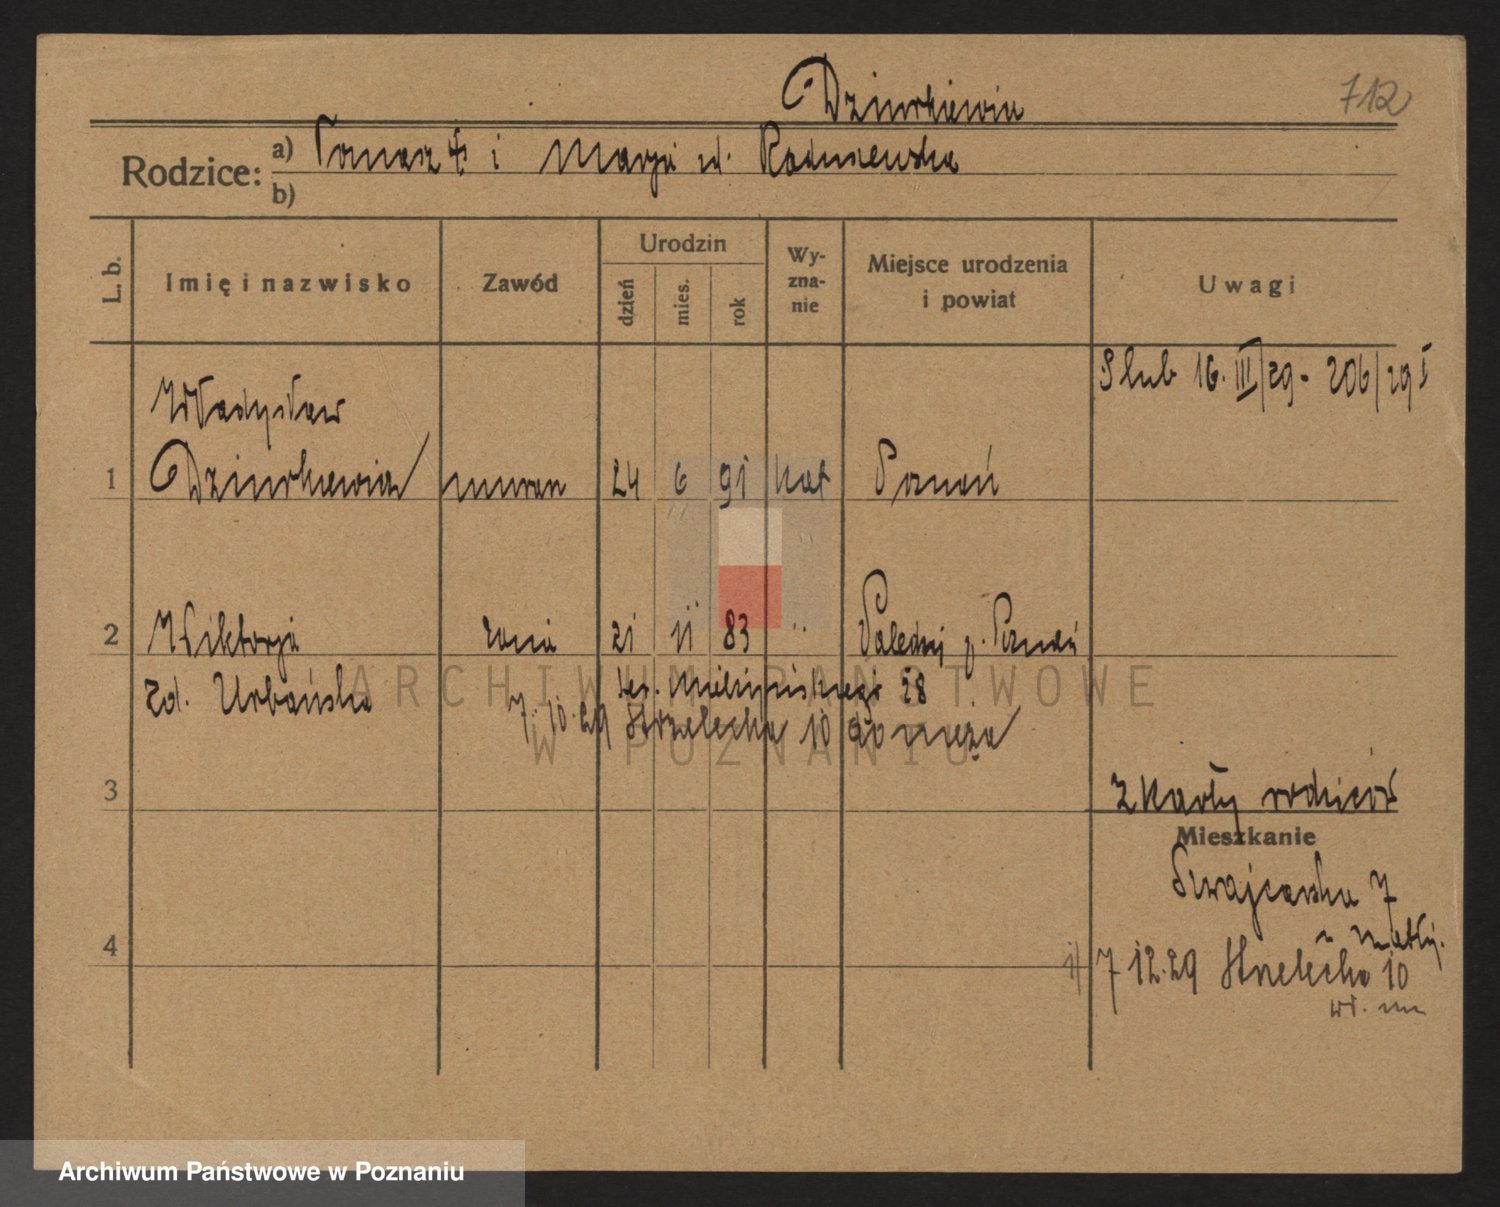 Dziurkiewicz 712
Rodzice: a) Tomasz † i Marja zd. Raduszewska
b)
L. b. Imię i nazwisko Zawód Urodzin dzień mies. rok Wy-zna-nie Miejsce urodzenia i powiat Uwagi
Slub 16.III/29 - 206/29 I
Władysław
1 Dziurkiewicz muran 24 6 91 kat Poznań
2 Wiktorja żona 21 11 83 " Palędzie p. Poznań
zd. Urbańska
28
7.10.29 Strzelecka 10 do męża
3
z karty rodziców
Mieszkanie
Szwajcarska 7
u matki.
4
1) 7 12.29 Strzelecka 10
ARCHIWUM PAŃSTWOWE
W POZNANIU
Archiwum Państwowe w Poznaniu